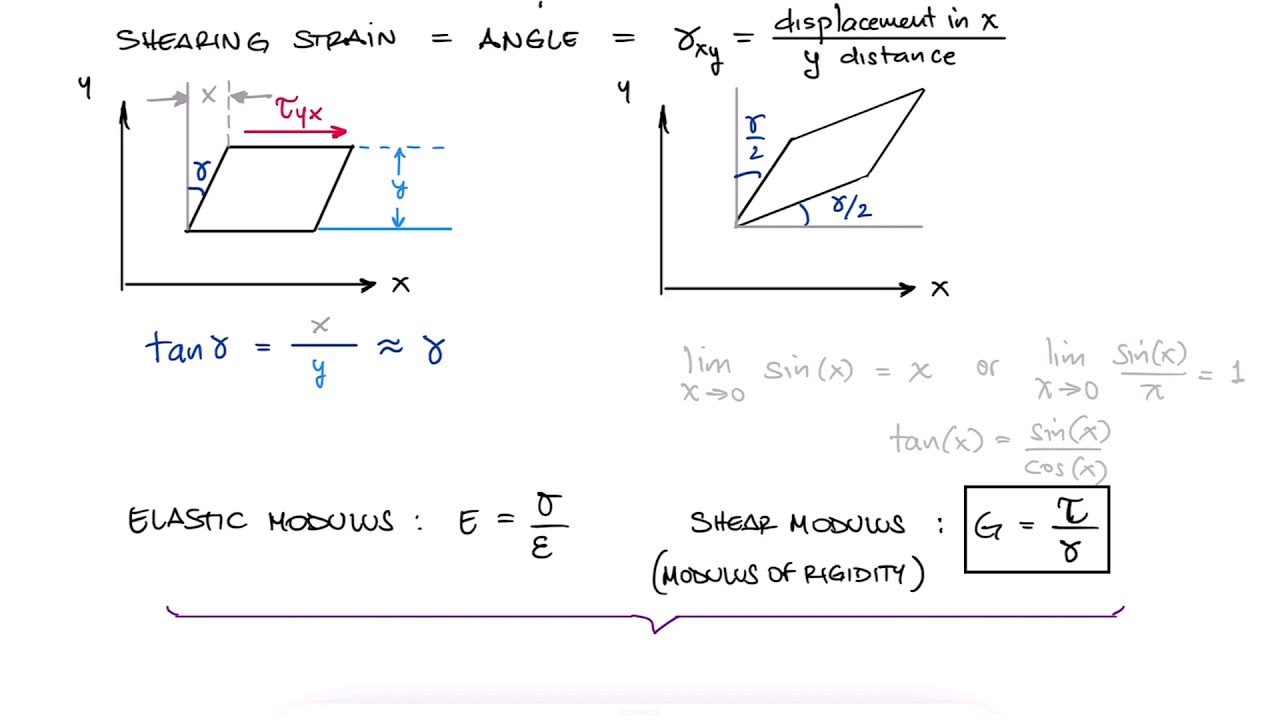 SHEARING STRAIN = ANGLE = γxy = displacement in x / y distance
y
x
τyx
γ
y
x
y
γ/2
γ/2
x
tan γ = x/y ≈ γ
lim x→0 sin(x) = x or lim x→0 sin(x)/x = 1
tan(x) = sin(x)/cos(x)
ELASTIC MODULUS : E = σ/ε
SHEAR MODULUS : G = τ/γ
(MODULUS OF RIGIDITY)